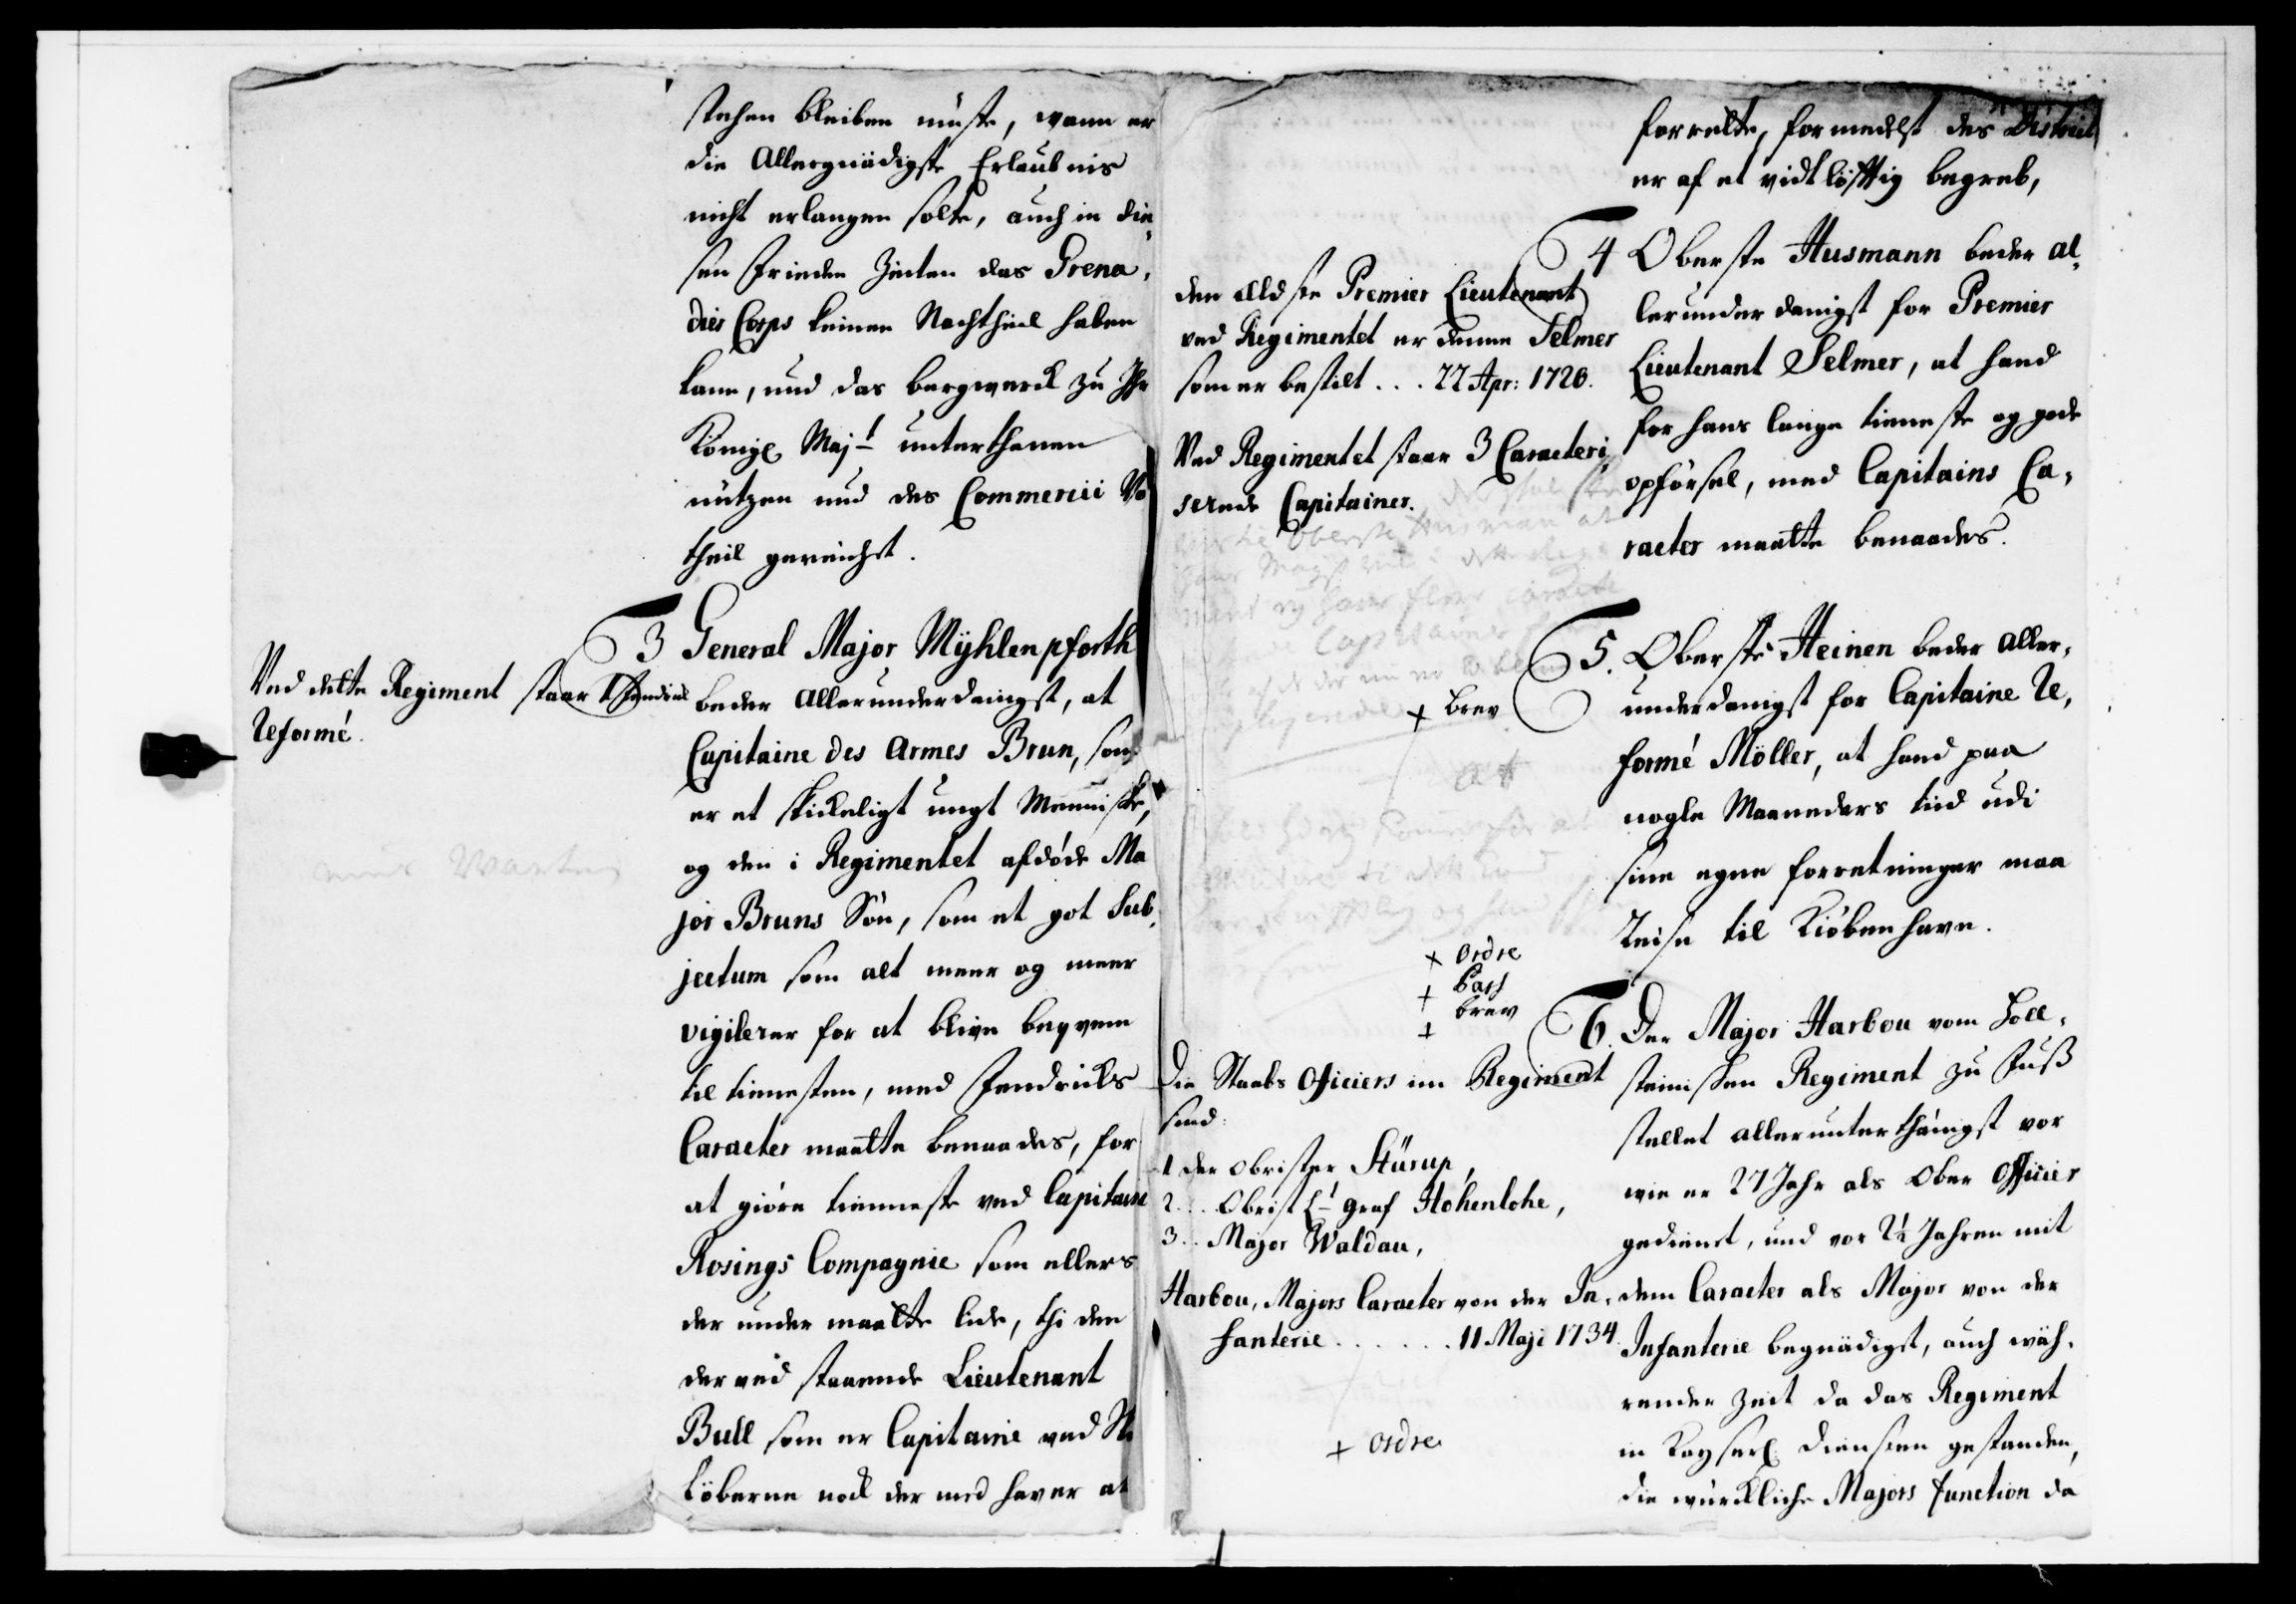 stehen bleiben müste, wann er
die Allergnädigste Erlaubnis
nicht erlangen solte, auch in die
sen Frieden Zeiten das Grena,
dier Corps keinen Nachtheil haben
kann, und das bergwerck zu Ihr
Königl Maj:t unterthanen
nützen und des Commercii Vo
theil gereichet.
Ved dette Regiment staar 1 Fendrik
Reformé.
3 General Major Mÿhlenpforth
beder Allerunderdanigst, at
Capitaine des Armes Brun, som
er et skickeligt ungt Menniske,
og den i Regimentet afdøde Ma
jor Bruns Søn, som et got Sub,
jectum som alt meer og meer
vigilerer for at blive beqvem
til tienesten, med Fendricks
Caracter maatte benaades, for
at giöre tienneste ved Capitain
Rosings Compagnie som ellers
der under maatte lide, thi den
der ved staaende Lieutenant
Bull som er Capitaine ved Ski
löberne nock der med haver at
forrette, formedelst des District
er af et vidtløfftig begreb,
den Eldste Premier Lieutenant
ved Regimentet er denne Selmer
som er bestilt . . . 22 Apr: 1720.
Ved Regimentet staar 3 Caracteri,
serede Capitainer.
4 Oberste Husmann beder al,
lerunderdanigst for Premier
Lieutenant Selmer, at hand
for hans lange tieneste og gode
opførsel, med Capitains Ca,
racter maatte benaades.
+ brev
5. Oberste Heinen beder aller,
underdanigst for Capitaine Re,
formé Möller, at hand paa
nogle Maaneders tiid udi
sine egne forretninger maa
Reise til Kiöbenhavn.
+ ordre
+ Pass
+ brev
Die Staabs Officiers im Regiment
sind:
1 der Obrister Stürup,
2... Obrist Lt Graf Hohenlohe,
3.. Major Waldau,
Harbou, Majors Caracter von der In,
fanterie . . . . . . 11 Maji 1734.
+ ordre
6. Der Major Harbou vom Holl,
steinischen Regiment zu Fuß
stellet allerunterthänigst vor
wie er 27 Jahr als Ober Officier
gedienet, und vor 2½ Jahren mit
dem Caracter als Major von der
Infanterie begnädiget, auch wäh,
render Zeit da das Regiment
in Kayserl Diensten gestanden,
die würckliche Majors Function da